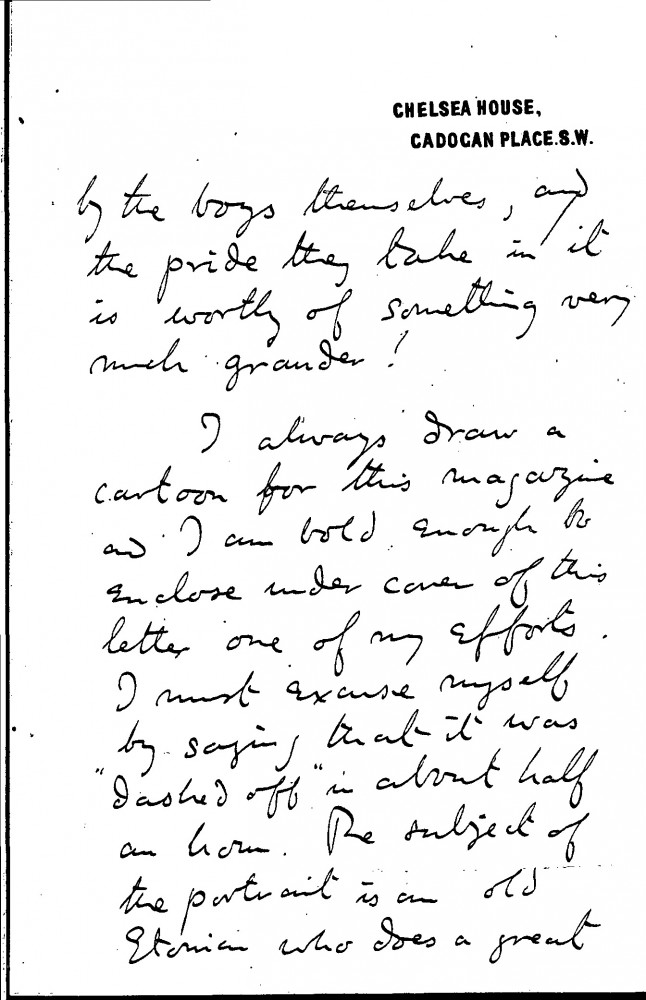 CHELSEA HOUSE,
CADOGAN PLACE.S.W.
by the boys themselves, and
the pride they take in it
is worthy of something very
much grander!
I always draw a
cartoon for this magazine
and I am bold enough to
enclose under cover of this
letter one of my efforts.
I must excuse myself
by saying that it was
"dashed off" in about half
an hour. The subject of
the portrait is an old
Etonian who does a great